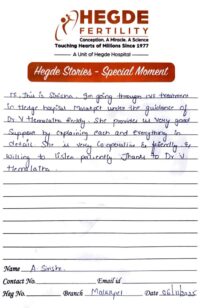 HEGDE
FERTILITY
Conception. A Miracle. A Science
Touching Hearts of Millions Since 1977
A Unit of Hegde Hospital
Hegde Stories - Special Moment
This is Sirisha. Im going through IVF treatment
in Hegde hospital Malakpet under the guidance of
Dr. V Hemalatha Reddy. She provides us very good
Support by explaining each and everything in
detail. She is very Co-operative & friendly &
willing to listen patiently. Thanks to Dr. V
Hemalatha.
Name A. Sirisha
Contact No. Email id
Heg No. Branch Malakpet Date